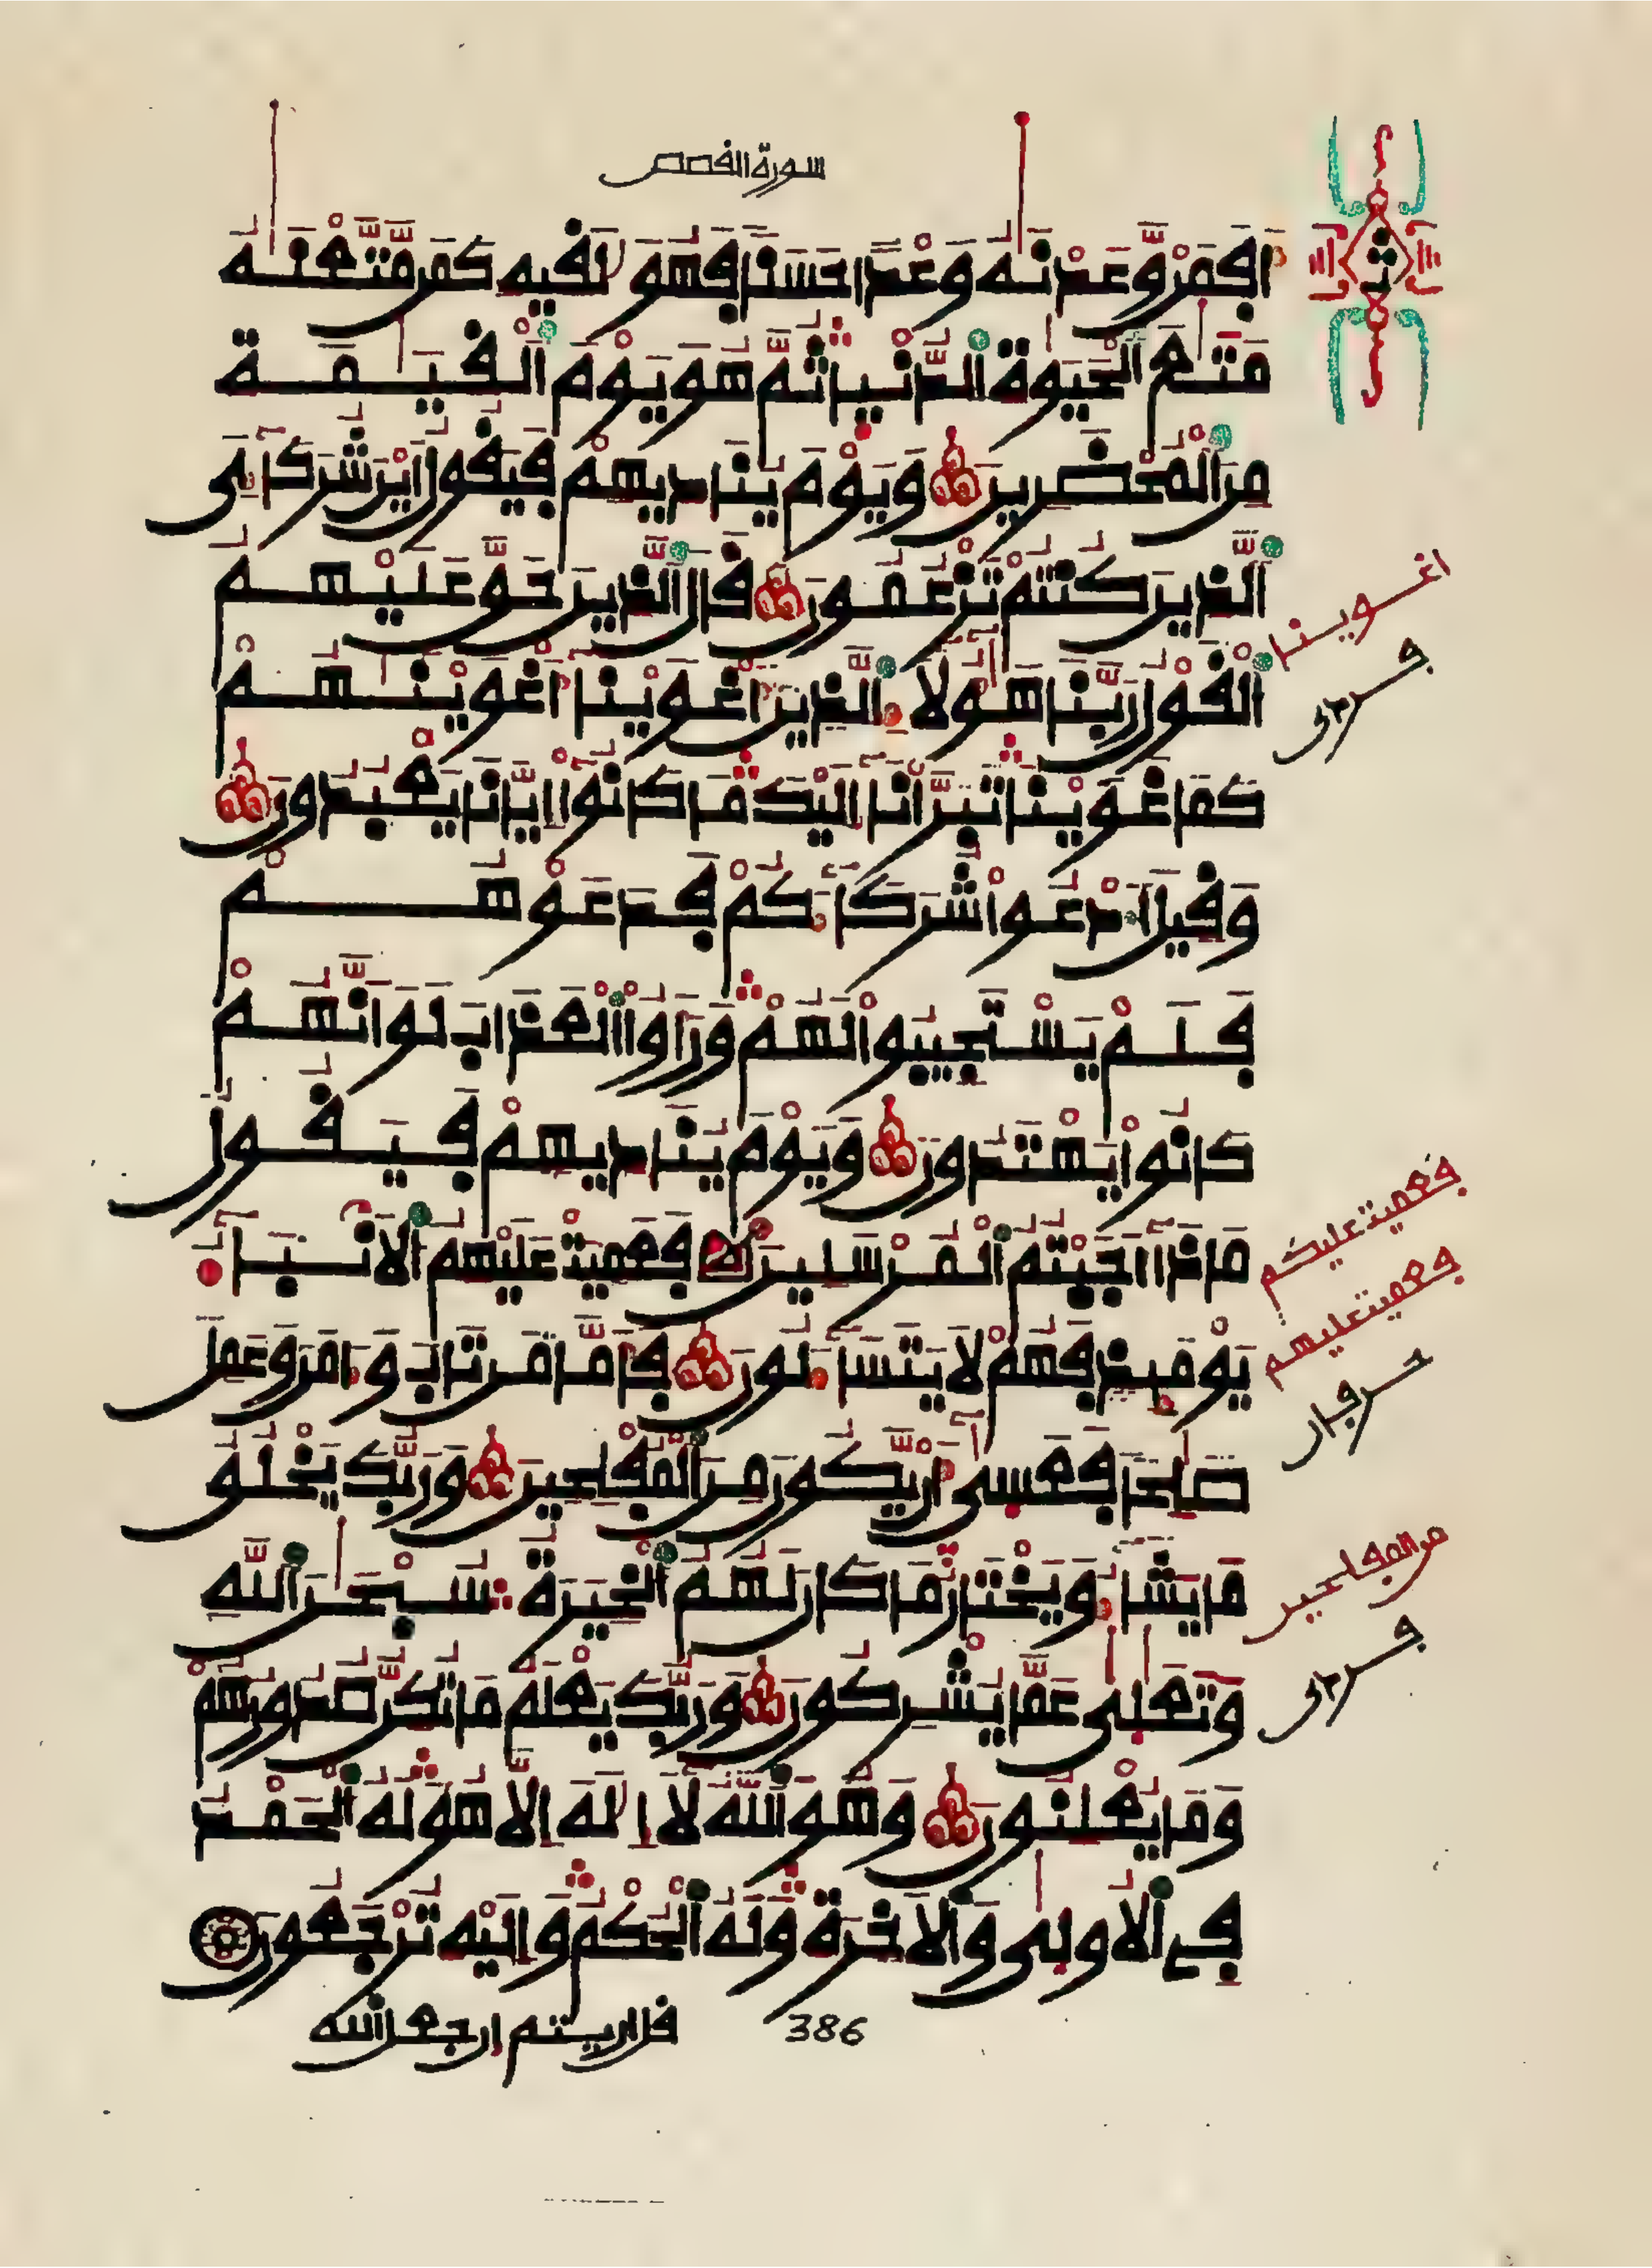 سورة القصص
ث
أفمن وعدنه وعدا حسنا فهو لقيه كمن متعنه
متع الحيوة الدنيا ثم هو يوم القيمة
من المحضرين ويوم يناديهم فيقول أين شركاءى
الذين كنتم تزعمون قال الذين حق عليهم
اغوينا
القول ربنا هؤلاء الذين أغوينا أغوينهم
كما غوينا تبرأنا إليك ما كانوا إيانا يعبدون
وقيل ادعوا شركاءكم فدعوهم
فلم يستجيبوا لهم ورأوا العذاب لو أنهم
كانوا يهتدون ويوم يناديهم فيقول
فعميت عليكم
ماذا أجبتم المرسلين فعميت عليهم الأنباء
فعميت عليهم
يومئذ فهم لا يتساءلون فأما من تاب وءامن وعمل
صلحا فعسى أن يكون من المفلحين وربك يخلق
من المفلحين
ما يشاء ويختار ما كان لهم الخيرة سبحن الله
وتعلى عما يشركون وربك يعلم ما تكن صدورهم
وما يعلنون وهو الله لا إله إلا هو له الحمد
في الأولى والأخرة وله الحكم وإليه ترجعون
قل اريتم إن جعل الله
386